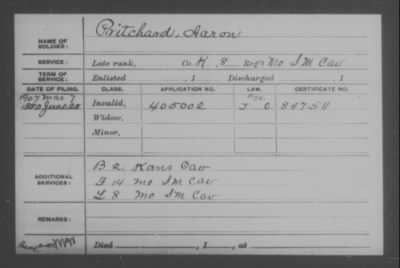 NAME OF SOLDIER: Pritchard, Aaron
SERVICE: Late rank, Co. K, 8 Reg't Mo S M Cav
TERM OF SERVICE: Enlisted , 1 Discharged , 1
DATE OF FILING. CLASS. APPLICATION NO. LAW. CERTIFICATE NO.
1907 Mar 7 Age
1880 June 25 Invalid, 405002 J C 847511
Widow,
Minor,
ADDITIONAL SERVICES: B 2 Kans Cav
F 14 Mo S M Cav
L 8 Mo S M Cav
REMARKS:
Died , 1 , at